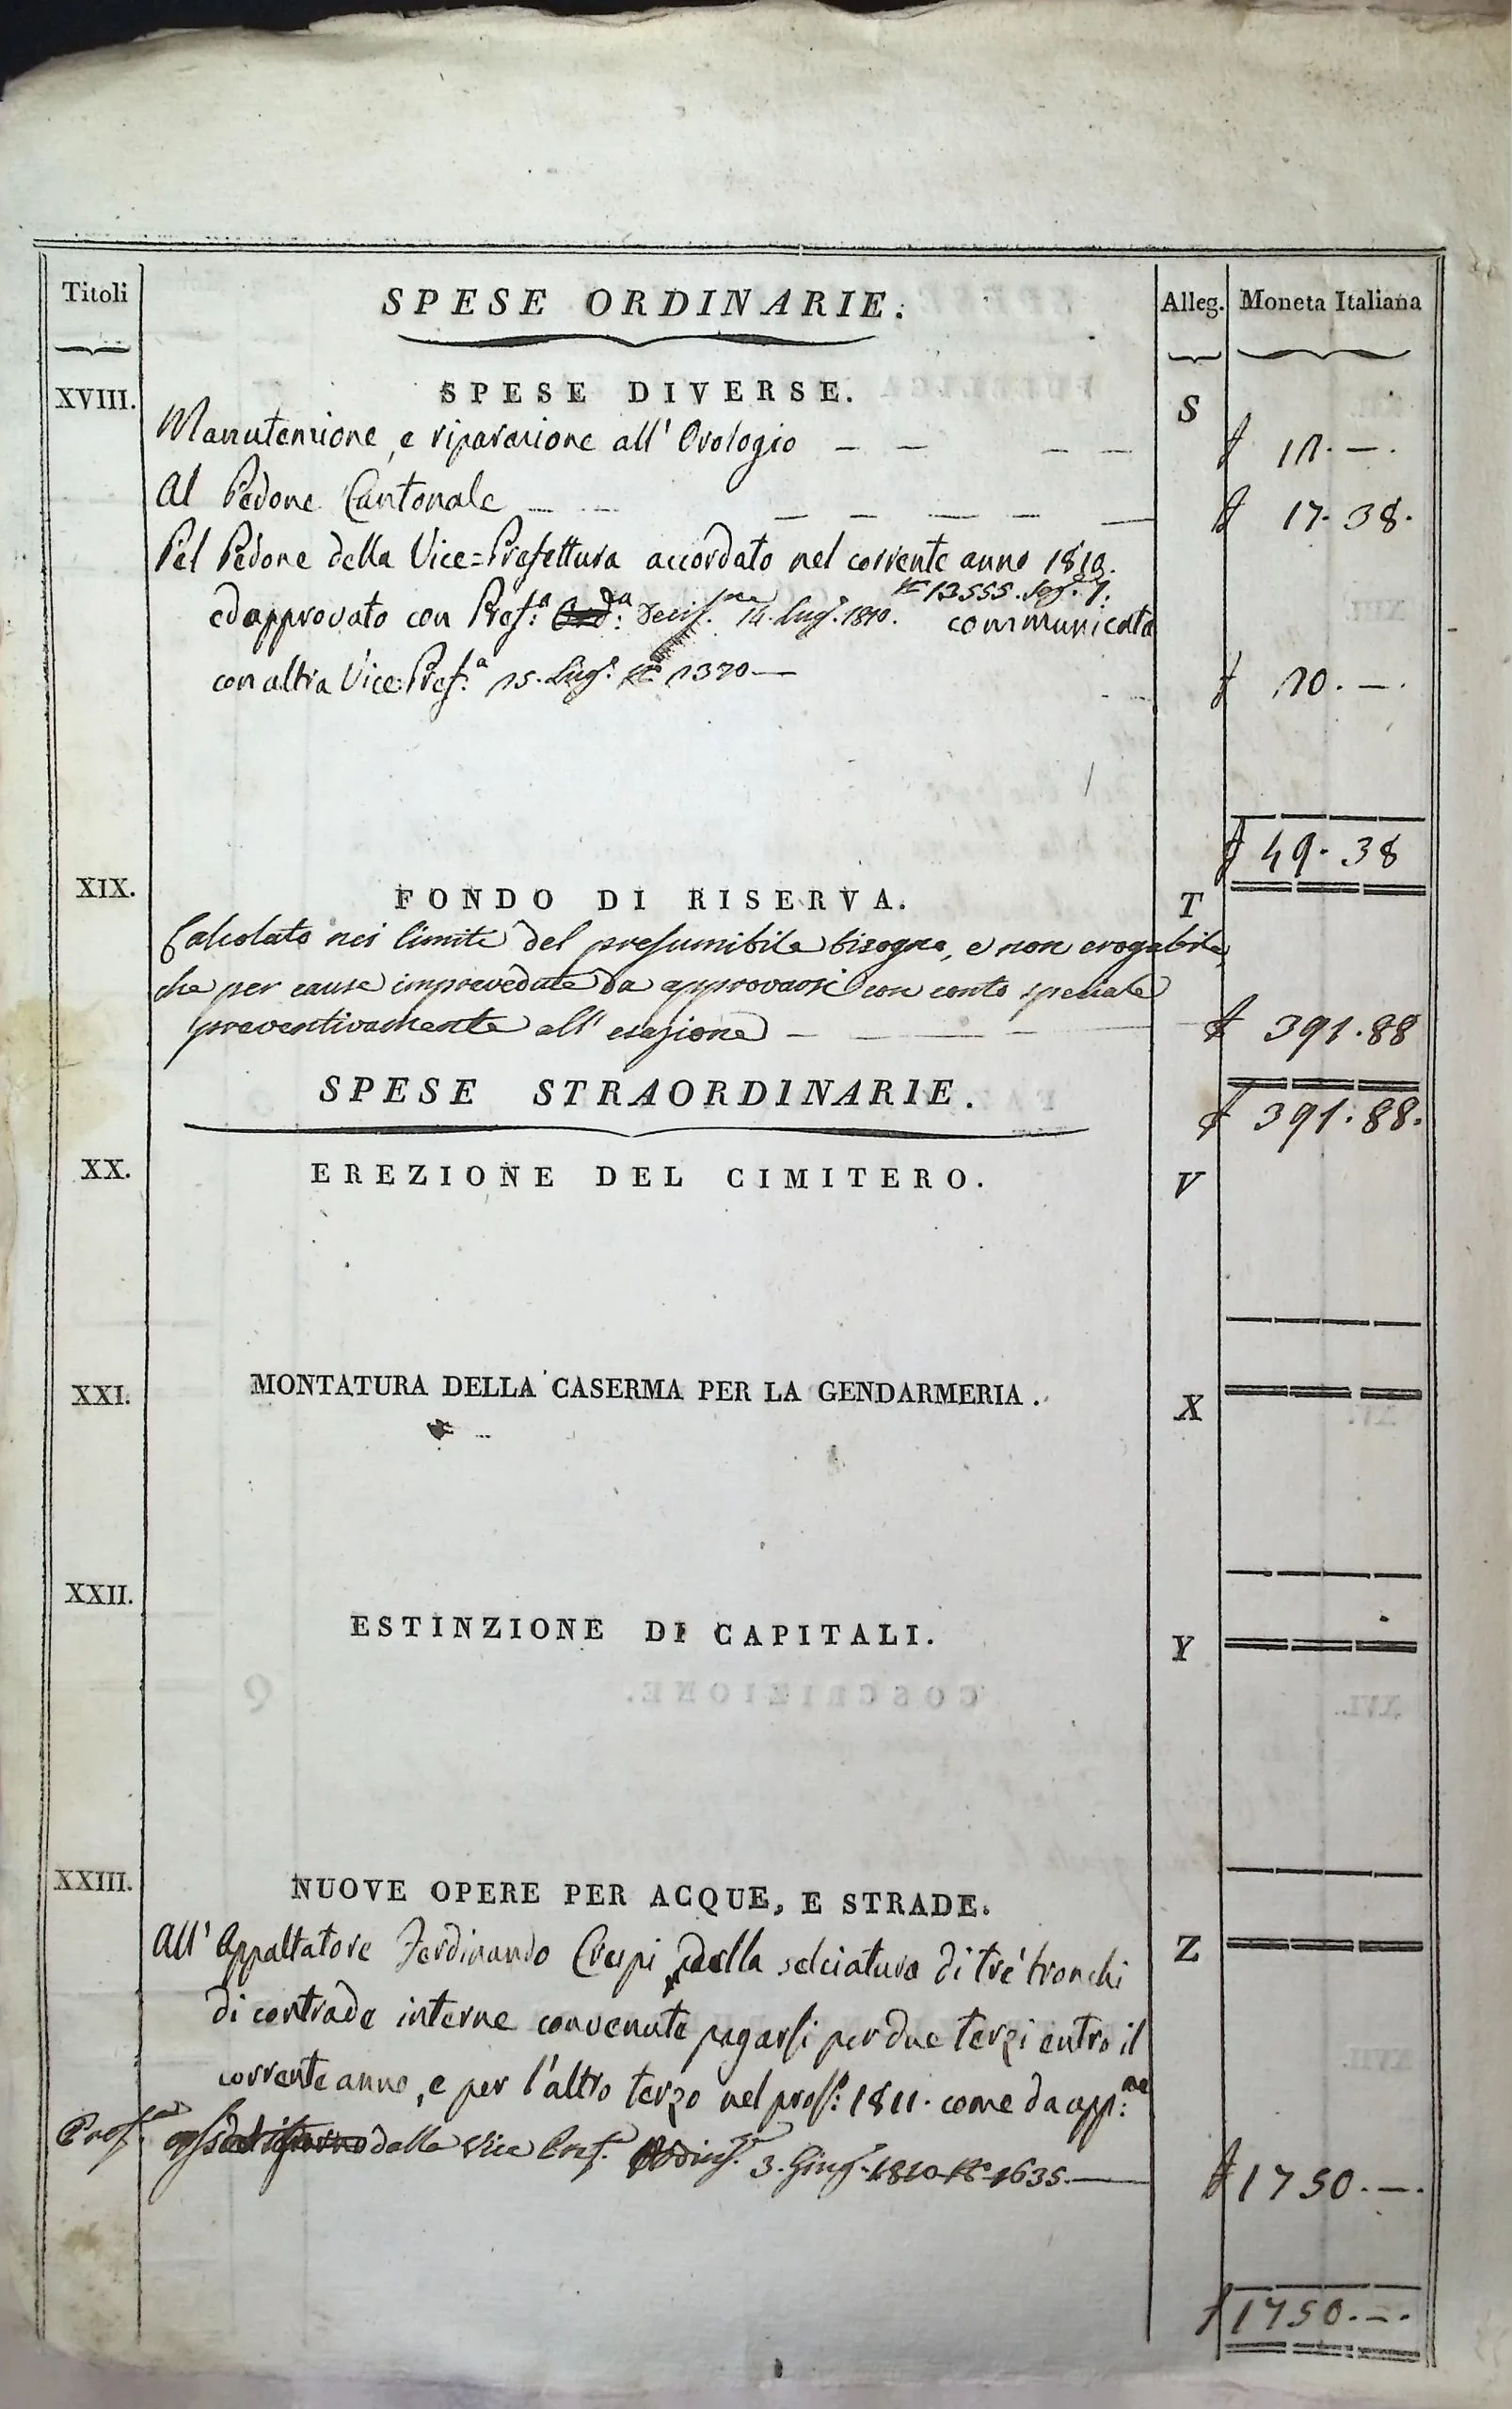 Titoli
SPESE ORDINARIE.
Alleg.
Moneta Italiana
XVIII.
SPESE DIVERSE.
S
Manutenzione, e riparazione all' Orologio — — — —
Al Pedone Cantonale — — — — — — —
17. 38.
Pel Pedone della Vice=Prefettura accordato nel corrente anno 1810.
N° 13555. Sez.e 1.
ed approvato con Pref.a 14. Lug.o 1810. communicata
con altra Vice:Pref.a 15. Lug.o N° 1370 —
10. —.
49. 38
XIX.
FONDO DI RISERVA.
T
Calcolato nei limiti del presumibile bisogno, e non erogabile,
che per cause imprevedute da approvarsi con conto speciale
preventivamente all' — — — —
391. 88
SPESE STRAORDINARIE.
391. 88.
XX.
EREZIONE DEL CIMITERO.
V
XXI.
MONTATURA DELLA CASERMA PER LA GENDARMERIA.
X
XXII.
ESTINZIONE DI CAPITALI.
Y
XXIII.
NUOVE OPERE PER ACQUE, E STRADE.
Z
All' Appaltatore Ferdinando Crespi della selciatura di tré tronchi
di contrade interne convenute pagarsi per due terzi entro il
corrente anno, e per l'altro terzo nel pross.o 1811. come da app.ne
Pref.a dalla Vice Pref.a 3. Giug.o 1810 N° 1635. —
1750. —.
1750. —.